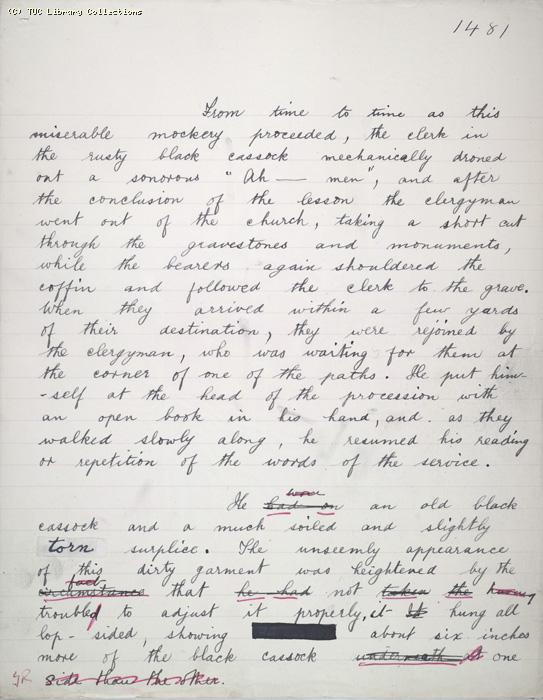 (C) TUC Library Collections
1481
From time to time as this
miserable mockery proceeded, the clerk in
the rusty black cassock mechanically droned
out a sonorous "Ah — men", and after
the conclusion of the lesson the clergyman
went out of the church, taking a short cut
through the gravestones and monuments,
while the bearers again shouldered the
coffin and followed the clerk to the grave.
When they arrived within a few yards
of their destination, they were rejoined by
the clergyman, who was waiting for them at
the corner of one of the paths. He put him-
-self at the head of the procession with
an open book in his hand, and as they
walked slowly along, he resumed his reading
or repetition of the words of the service.
wore
He had on an old black
cassock and a much soiled and slightly
torn surplice. The unseemly appearance
of this dirty garment was heightened by the
fact
circumstance that he had not taken the
troubled to adjust it properly, it It hung all
lop-sided, showing about six inches
more of the black cassock underneath one
side than the other.